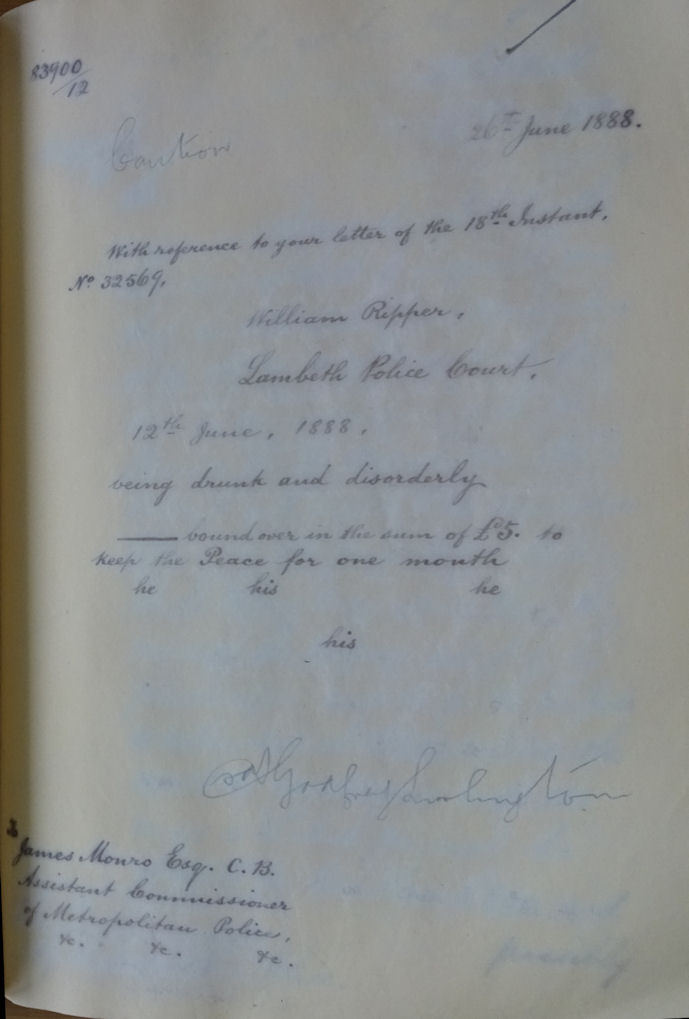 83900
/12
26th June 1888.
Caution
With reference to your letter of the 18th Instant,
No 32569,
William Ripper,
Lambeth Police Court,
12th June, 1888,
being drunk and disorderly
—— bound over in the sum of £5. to
keep the Peace for one month
he his he
his
Godfrey Lushington
James Monro Esq. C.B.
Assistant Commissioner
of Metropolitan Police,
&c. &c. &c.